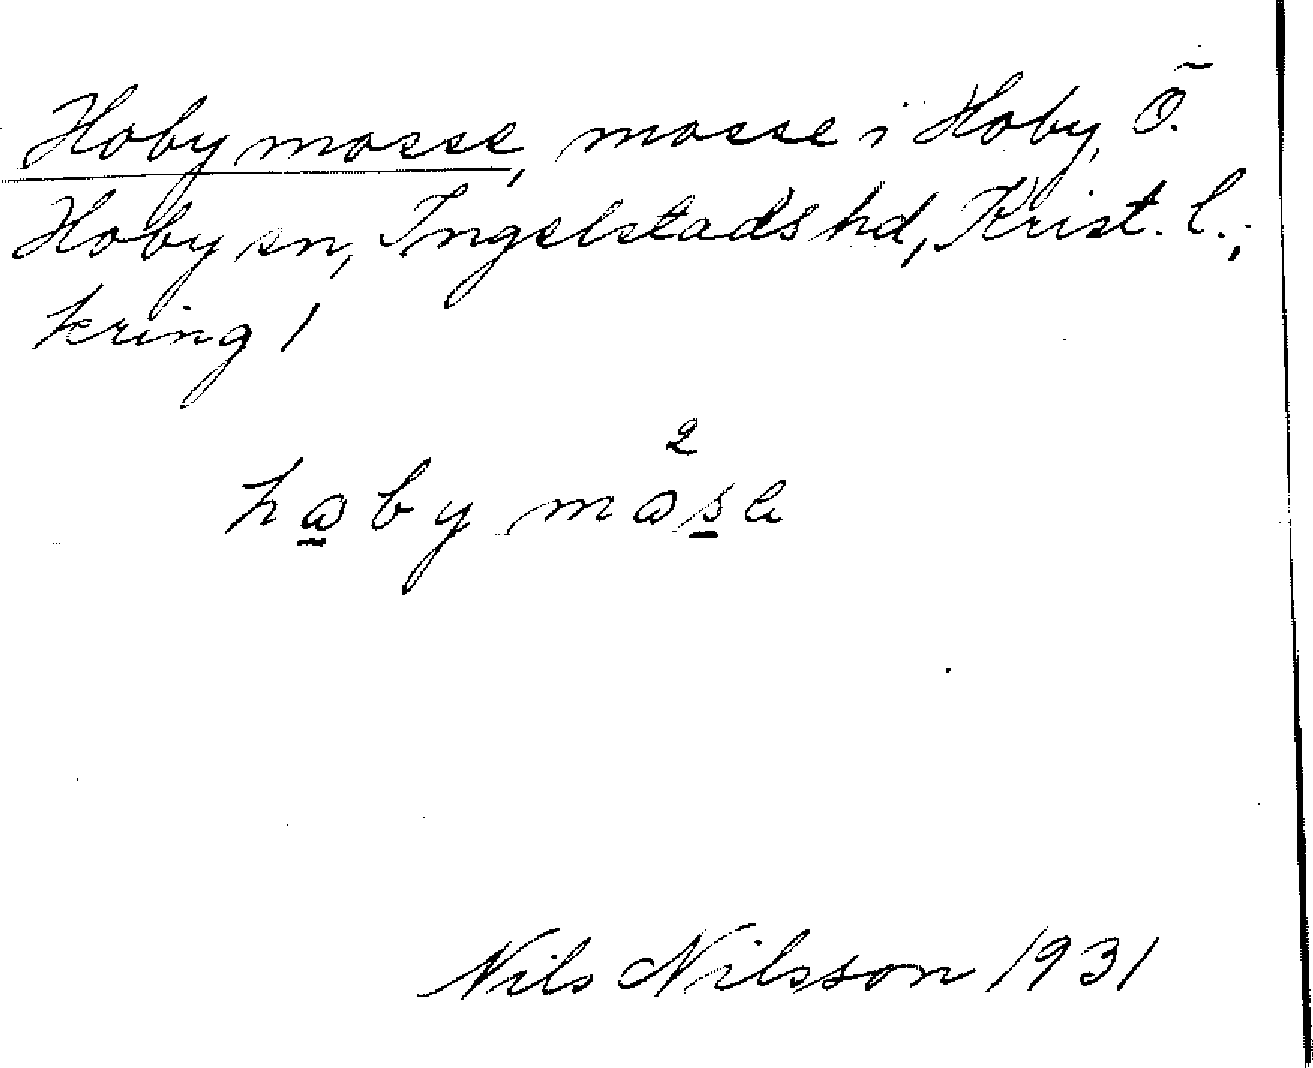 Hoby mosse, mosse i Hoby, Ö.
Hoby sn, Ingelstads hd, Krist. l.,
kring 1
2
Nils Nilsson 1931